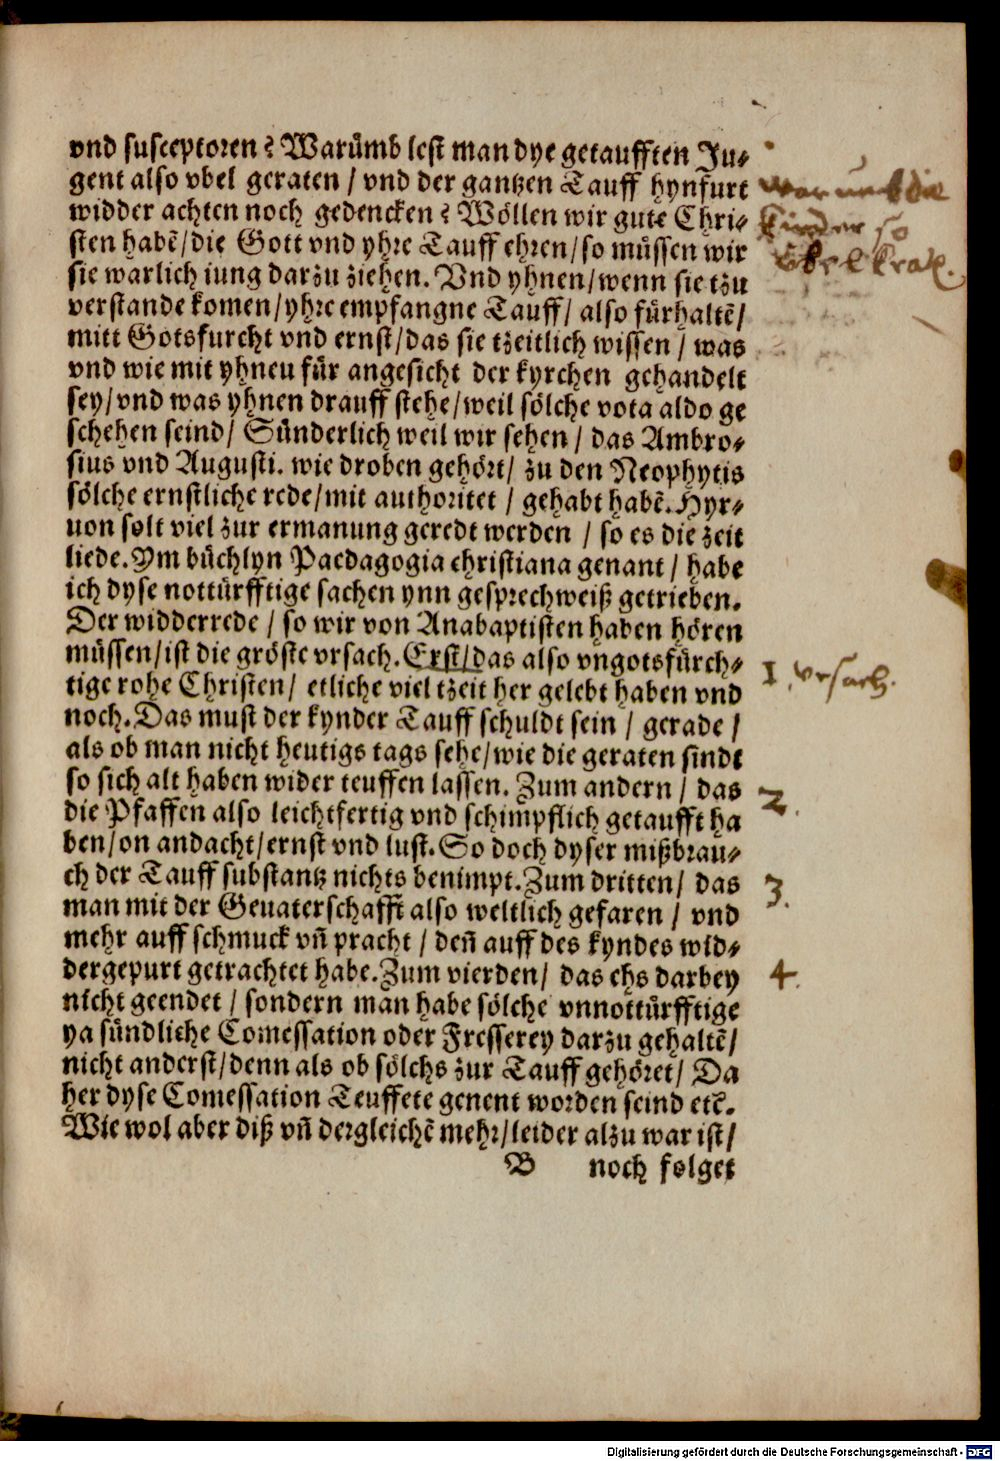 vnd susceptoren? Warümb lest man dye getaufften Ju-
gent also vbel geraten / vnd der gantzen Tauff hynfurt
widder achten noch gedencken? Wöllen wir gute Chri-
sten habẽ/die Gott vnd yhre Tauff ehren/so müssen wir
sie warlich iung darzu ziehen. Vnd yhnen/wenn sie tzu
verstande komen/yhre empfangne Tauff/ also fürhaltẽ/
mitt Gotsfurcht vnd ernst/das sie tzeitlich wissen / was
vnd wie mit yhneu für angesicht der kyrchen gehandelt
sey/vnd was yhnen drauff stehe/weil sölche vota aldo ge
schehen seind/ Sünderlich weil wir sehen / das Ambro-
sius vnd Augusti. wie droben gehört/ zu den Neophytis
sölche ernstliche rede/mit authoritet / gehabt habẽ. Hyr-
uon solt viel zur ermanung geredt werden / so es die zeit
liede. Ym büchlyn Paedagogia christiana genant / habe
ich dyse nottürfftige sachen ynn gesprechweiß getrieben.
Der widderrede / so wir von Anabaptisten haben hören
müssen/ist die gröste vrsach. Erst/das also vngotsfürch-
tige rohe Christen/ etliche viel tzeit her gelebt haben vnd
noch. Das must der kynder Tauff schuldt sein / gerade /
als ob man nicht heutigs tags sehe/wie die geraten sindt
so sich alt haben wider teuffen lassen. Zum andern / das
die Pfaffen also leichtfertig vnd schimpflich getaufft ha
ben/on andacht/ernst vnd lust. So doch dyser mißbrau-
ch der Tauff substantz nichts benimpt. Zum dritten/ das
man mit der Geuaterschafft also weltlich gefaren / vnd
mehr auff schmuck vñ pracht / deñ auff des kyndes wid-
dergepurt getrachtet habe. Zum vierden/ das ehs darbey
nicht geendet / sondern man habe sölche vnnottürfftige
ya sündliche Comessation oder Fresserey darzu gehaltẽ/
nicht anderst/denn als ob sölchs zur Tauff gehöret/ Da
her dyse Comessation Teuffete genent worden seind etc̃.
Wie wol aber diß vñ dergleichẽ mehr/leider alzu war ist/
B noch folget
kinder so
1. vrsach.
2.
3.
4.
Digitalisierung gefördert durch die Deutsche Forschungsgemeinschaft - DFG